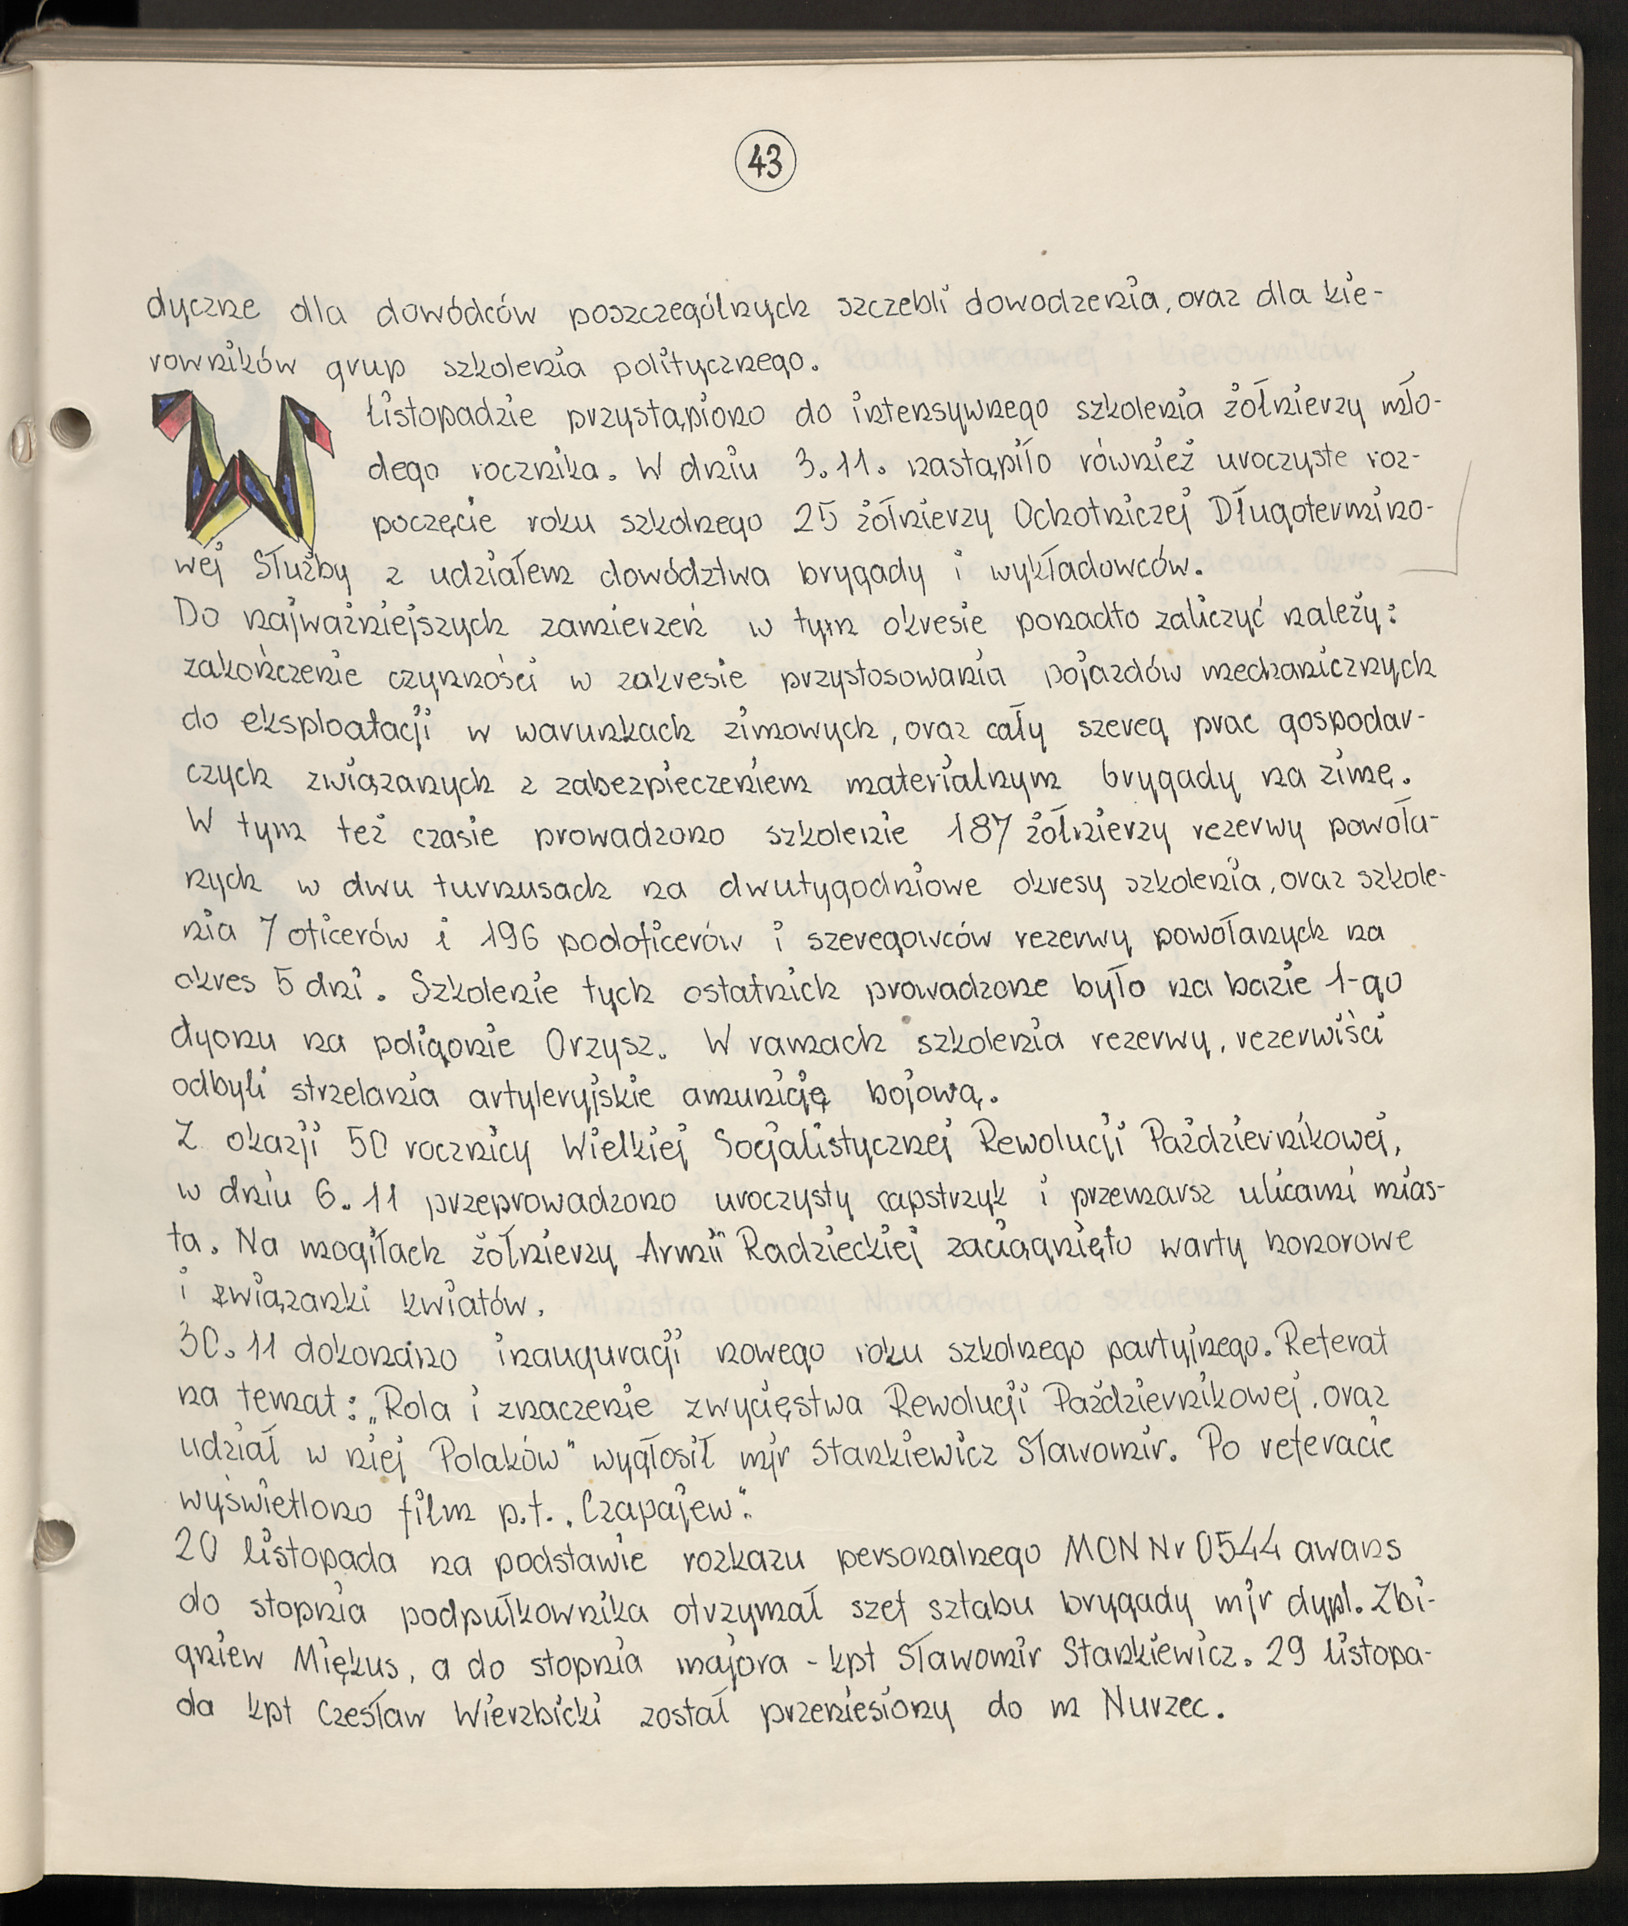 43
dyczne dla dowódców poszczególnych szczebli dowodzenia, oraz dla kie-
rowników grup szkolenia politycznego.
W listopadzie przystąpiono do intensywnego szkolenia żołnierzy mło-
dego rocznika. W dniu 3.11. nastąpiło również uroczyste roz-
poczęcie roku szkolnego 25 żołnierzy Ochotniczej Długotermino-
wej Służby z udziałem dowództwa brygady i wykładowców.
Do najważniejszych zamierzeń w tym okresie ponadto zaliczyć należy:
zakończenie czynności w zakresie przystosowania pojazdów mechanicznych
do eksploatacji w warunkach zimowych, oraz cały szereg prac gospodar-
czych związanych z zabezpieczeniem materialnym brygady na zimę.
W tym też czasie prowadzono szkolenie 187 żołnierzy rezerwy powoła-
nych w dwu turnusach na dwutygodniowe okresy szkolenia, oraz szkole-
nia 7 oficerów i 196 podoficerów i szeregowców rezerwy powołanych na
okres 5 dni. Szkolenie tych ostatnich prowadzone było na bazie 1-go
dyonu na poligonie Orzysz. W ramach szkolenia rezerwy, rezerwiści
odbyli strzelania artyleryjskie amunicję bojową.
Z okazji 50 rocznicy Wielkiej Socjalistycznej Rewolucji Październikowej,
w dniu 6.11 przeprowadzono uroczysty capstrzyk i przemarsz ulicami mias-
ta. Na mogiłach żołnierzy Armii Radzieckiej zaciągnięto warty honorowe
i związanki kwiatów.
30.11 dokonano inauguracji nowego roku szkolnego partyjnego. Referat
na temat: „Rola i znaczenie zwycięstwa Rewolucji Październikowej, oraz
udział w niej Polaków" wygłosił mjr Stankiewicz Sławomir. Po referacie
wyświetlono film p.t. „Czapajew".
20 listopada na podstawie rozkazu personalnego MON Nr 0544 awans
do stopnia podpułkownika otrzymał szef sztabu brygady mjr dypl. Zbi-
gniew Miękus, a do stopnia majora - kpt Sławomir Stankiewicz. 29 listopa-
da kpt Czesław Wierzbicki został przeniesiony do m Nurzec.